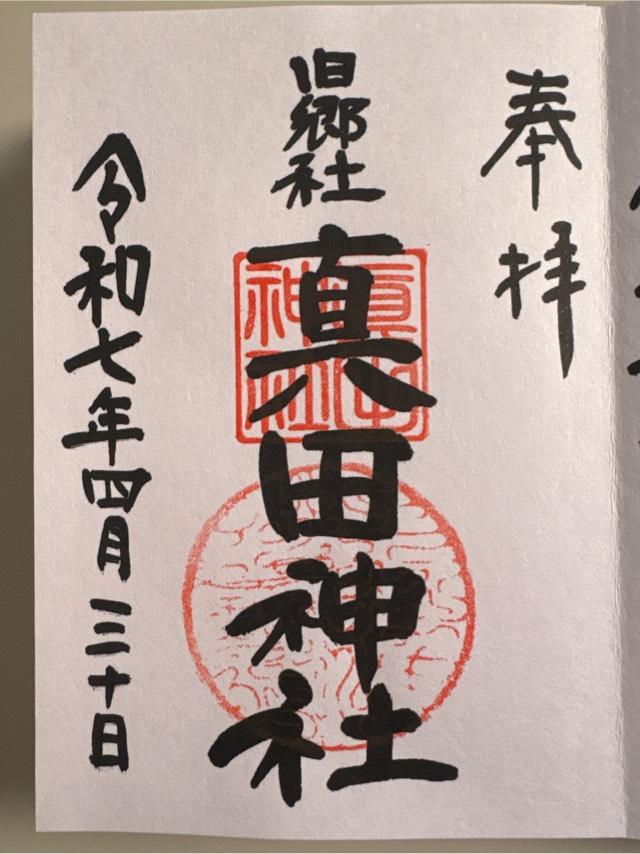 奉拝
旧郷社
真田神社
眞田神社
令和七年四月三十日